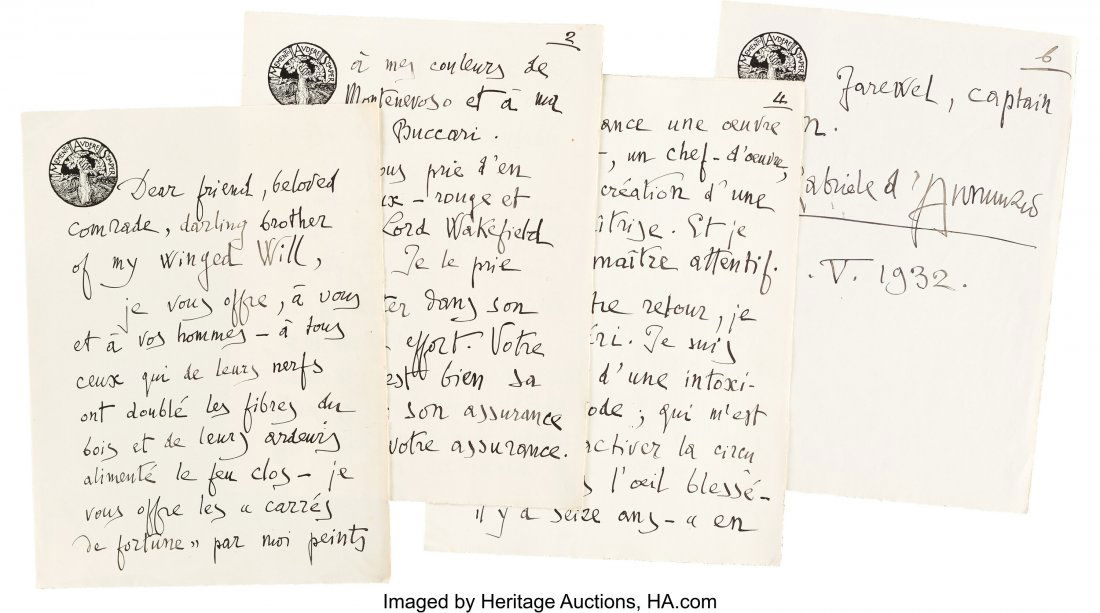 MEMENTO AUDERE SEMPER
Dear friend, beloved
comrade, darling brother
of my Winged Will,
je vous offre, à vous
et à vos hommes – à tous
ceux qui de leurs nerfs
ont doublé les fibres du
bois et de leurs ardeurs
alimenté le feu clos – je
vous offre les « carrés
de fortune » par moi peints
MEMENTO AUDERE SEMPER
2
à mes couleurs de
Montenevoso et à ma
Buccari.
ous prie d'en
ux – rouge et
Lord Wakefield
Je le prie
ter dans son
effort. Votre
est bien sa
son assurance
votre assurance.
4
ance une œuvre
–, un chef-d'œuvre,
création d'une
îtrise. Et je
maître attentif.
tre retour, je
éri. Je suis
d'une intoxi-
ode ; qui m'est
activer la circu
s l'œil blessé –
il y a seize ans – « en
6
Farewel, captain
n.
Gabriele d'Annunzio
. V. 1932.
Imaged by Heritage Auctions, HA.com